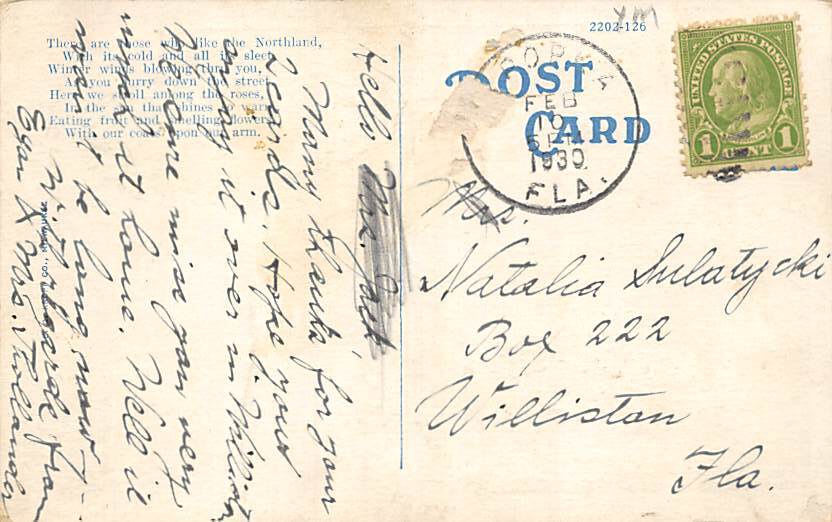 2202-126
There are those who like the Northland,
With its cold and all its sleet,
Winter winds blowing thru you,
As you hurry down the street.
Here we stroll among the roses,
In the sun that shines so warm
Eating fruit and smelling flowers
With our coats upon our arm.
POST CARD
FEB
10
1930
FLA.
UNITED STATES POSTAGE
1 CENT 1
Mrs.
Natalia Sulatycki
Box 222
Williston
Fla.
Hello Mrs. Jack
Many thanks for your
2 cards. Hope your
enjoy it over in Williston
We sure miss you very
much at home. Well it
won't be long now -
from
Egan & Mrs. Thollander